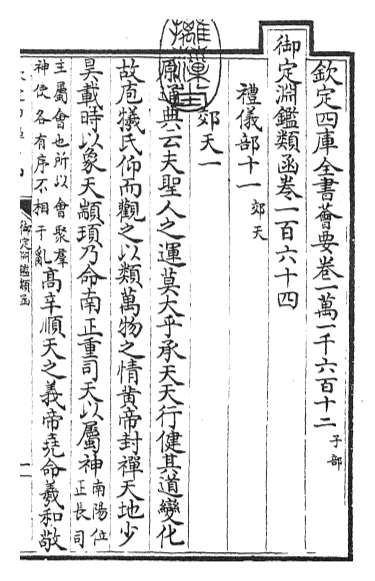 欽定四庫全書薈要卷一萬一千六百十二 子部
御定淵鑑類函卷一百六十四
禮儀部十一 郊天
郊天一
原通典云夫聖人之運莫大乎承天天行健其道變化
故庖犧氏仰而觀之以類萬物之情黄帝封禪天地少
昊載時以象天顓頊乃命南正重司天以屬神 南陽位正長司
主屬會也所以會聚羣神使各有序不相干亂 高辛順天之義帝堯命羲和敬
御定淵鑑類函
一